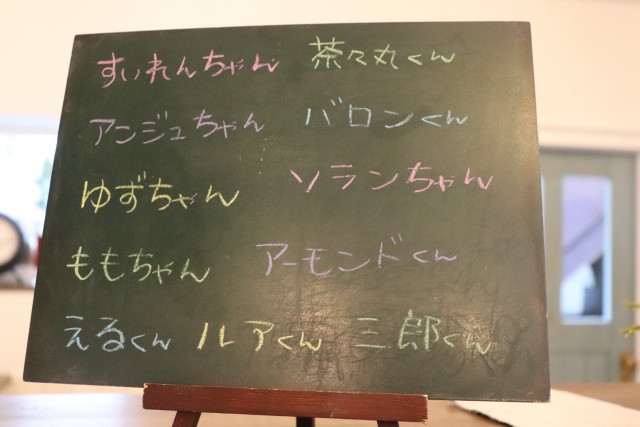 すいれんちゃん 茶々丸くん
アンジュちゃん バロンくん
ゆずちゃん ソランちゃん
ももちゃん アーモンドくん
えるくん ルアくん 三郎くん